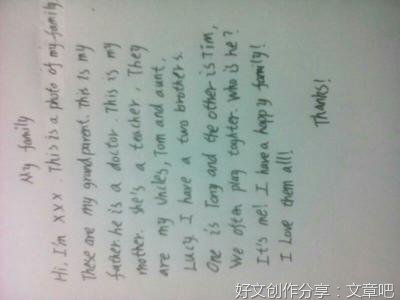 My family
Hi, I'm xxx. This is a photo of my family.
These are my grandparent. This is my
father. he is a doctor. This is my
mother. she's a teacher. They
are my uncles, Tom and aunt,
Lucy. I have a two brothers.
One is Tony and the other is Tim,
We often play toghter. Who is he?
It's me! I have a happy family!
I Love them all!
Thanks!
好文创作分享：文章吧